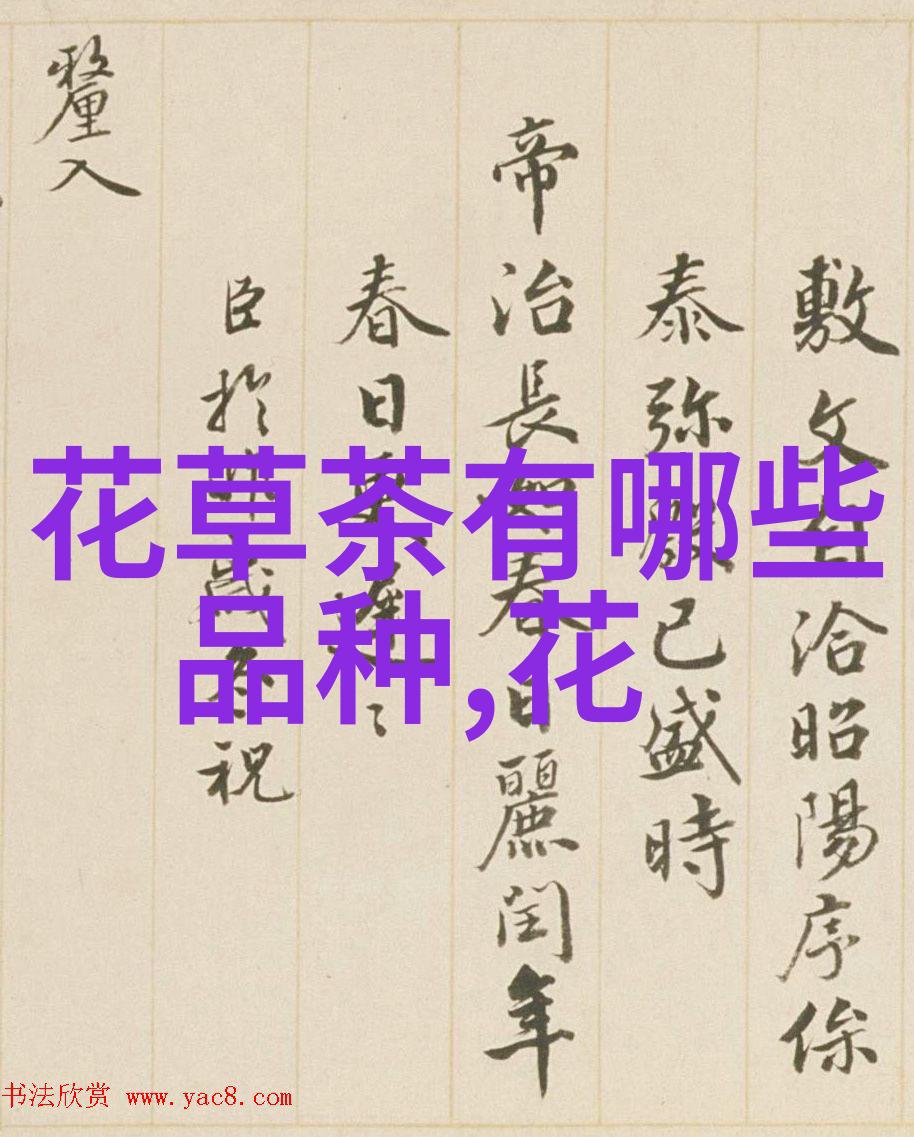 敷文洽昭陽序
泰弥已盛時
帝治長春日麗閏年
春日
臣於祝
釐入
花草茶有哪些
品种,花
书法欣赏 www.yac8.com